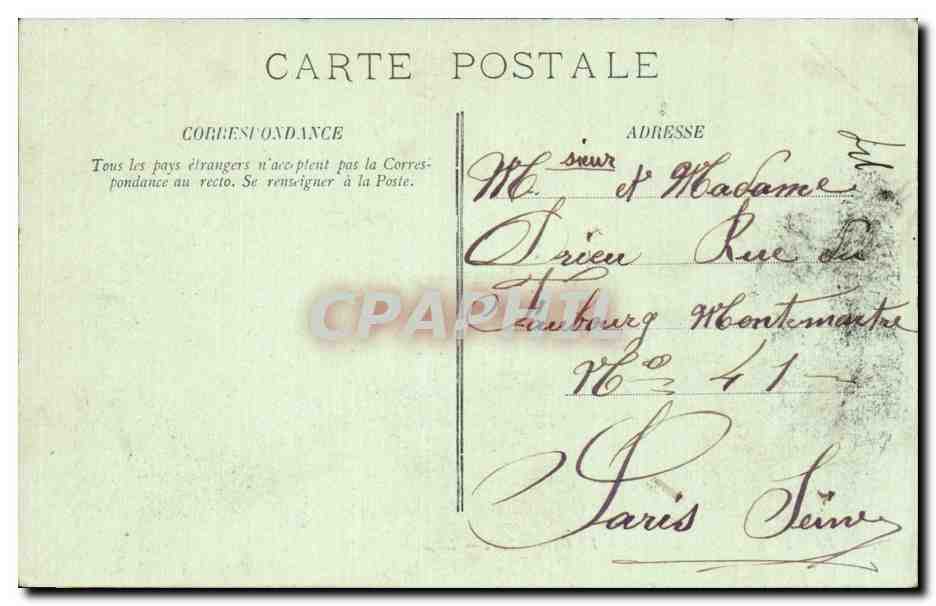 CARTE POSTALE
CORRESPONDANCE
Tous les pays étrangers n'acceptent pas la Corres-
pondance au recto. Se renseigner à la Poste.
ADRESSE
M.sieur et Madame
Drieu Rue du
Faubourg Montmartre
No 41
Paris Seine
CPAPHIL